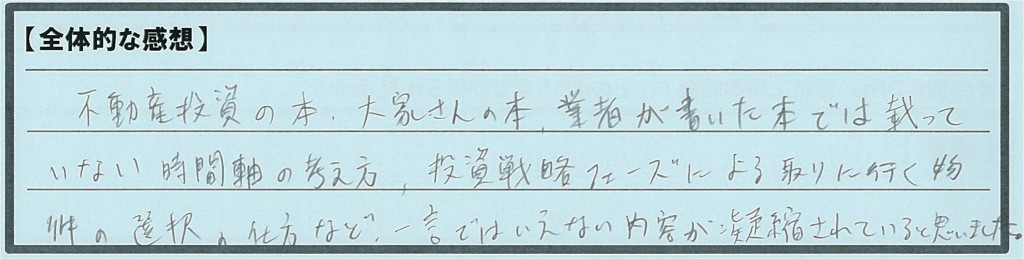 【全体的な感想】
不動産投資の本、大家さんの本、業者が書いた本では載って
いない時間軸の考え方、投資戦略フェーズによる取りに行く物
件の選択の仕方など、一言ではいえない内容が凝縮されていると思いました。